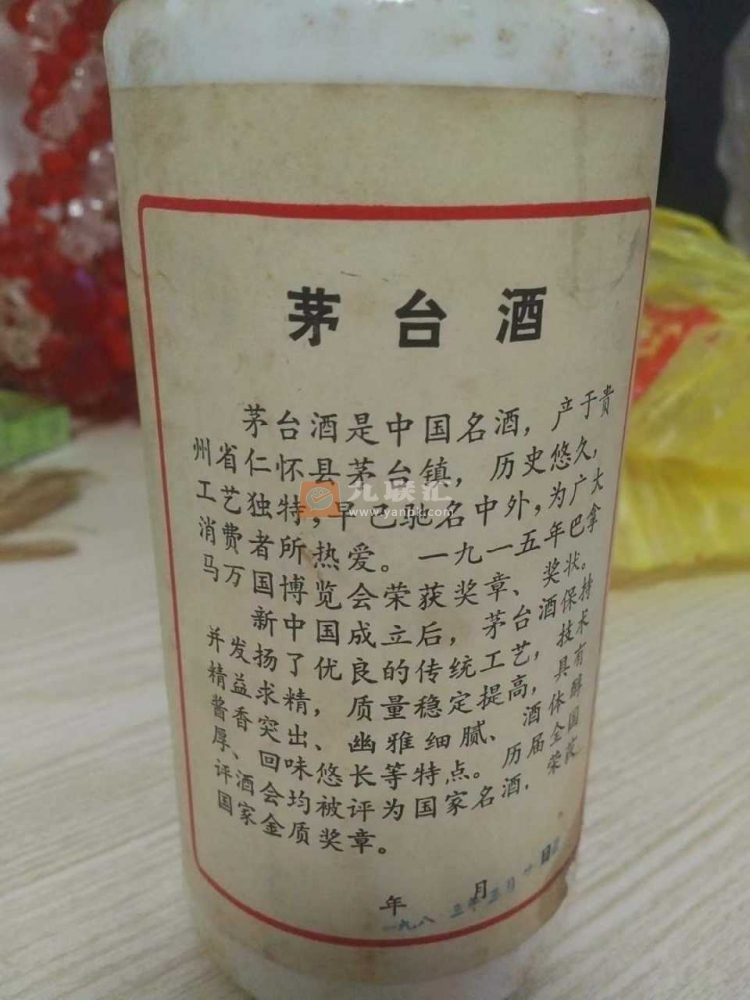 茅台酒
茅台酒是中国名酒，产于贵
州省仁怀县茅台镇，历史悠久，
工艺独特，早已驰名中外，为广大
消费者所热爱。一九一五年巴拿
马万国博览会荣获奖章、奖状。
新中国成立后，茅台酒保持
并发扬了优良的传统工艺，技术
精益求精，质量稳定提高，具有
酱香突出、幽雅细腻、酒体醇
厚、回味悠长等特点。历届全国
评酒会均被评为国家名酒，荣获
国家金质奖章。
年 月 日
一九八三年五月十
九联汇
www.yanbk.com